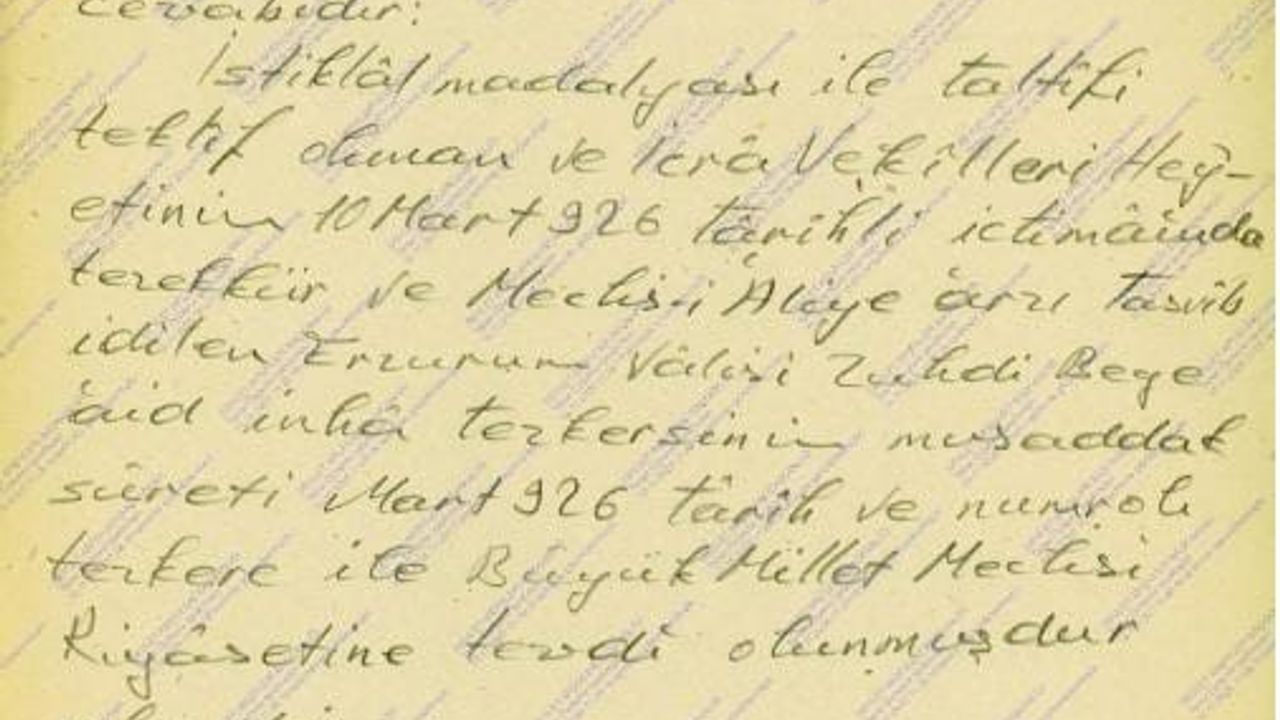 cevabıdır:
İstiklâl madalyası ile taltîfi
teklîf olunan ve İcrâ Vekîlleri Hey-
etinin 10 Mart 926 târihli ictimâında
tezekkür ve Meclis-i Âliye arzı tasvîb
idilen Erzurum Vâlisi Zuhdi Beye
âid inhâ tezkersinin musaddak
sûreti Mart 926 târih ve numrolu
tezkere ile Büyük Millet Meclisi
Riyâsetine tevdî olunmuşdur